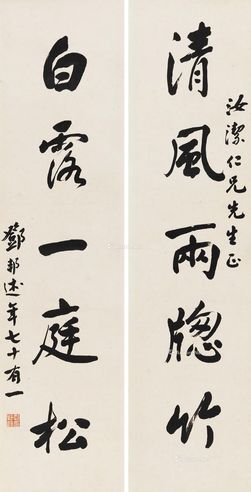 汝潔仁兄先生正
清風兩牕竹
白露一庭松
鄧邦述年七十有一